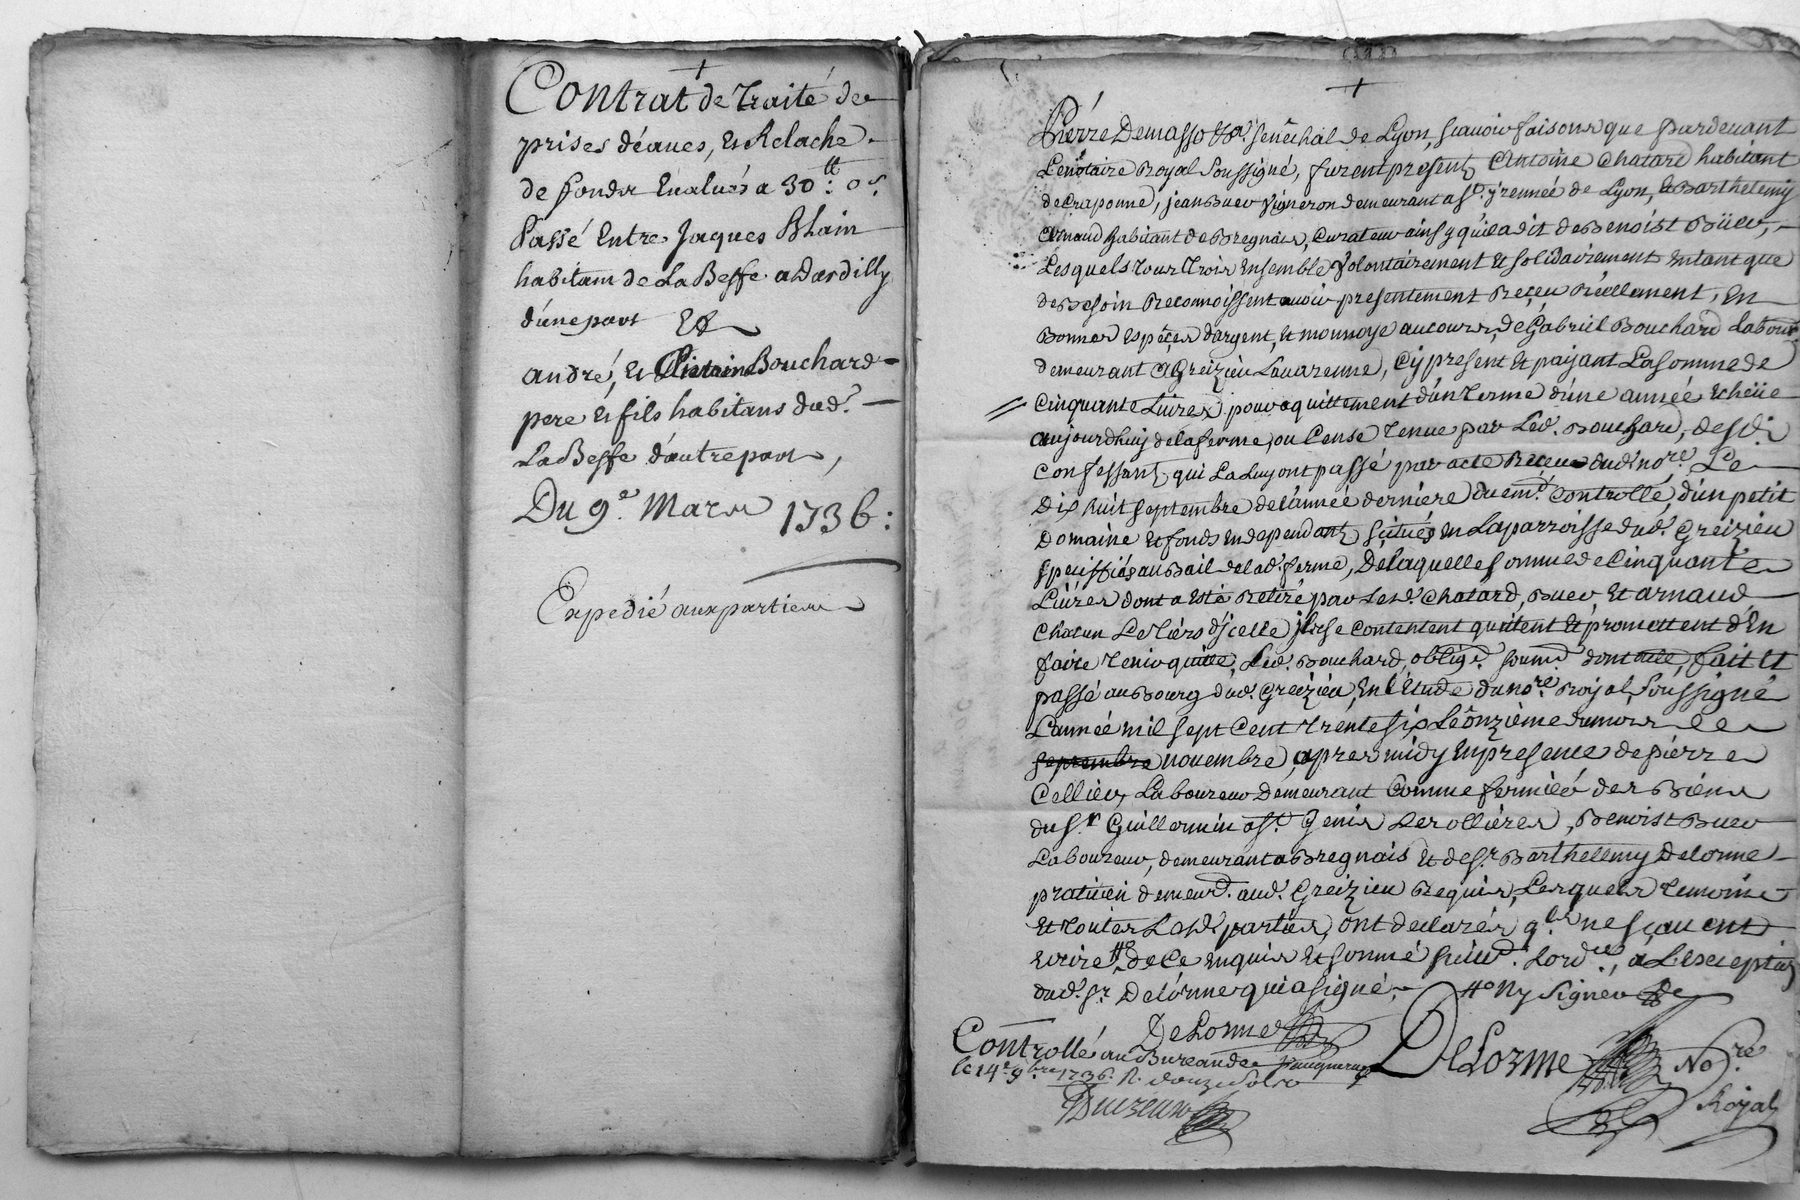 Contrat de traité de
prises déaues, et Relache
de fonds Evalués a 30 ᵗᵗ: 0 s.
Passé Entre Jaques Blain
habitant de La Beffe a Dardilly
d'une part Et
andré, et Bouchard
pere et fils habitans dud.
La Beffe d'autre part,
Du 9.e Mars 1736:
Expedié aux parties
Pierre Demasso &a. senechal de Lyon, scavoir faisons que pardevant
Le notaire Royal soussigné, furent presents Antoine Chatard habitant
de Craponne, jean Buer vigneron demeurant a st. yrennée de Lyon, et Barthelemy
Arnaud habitant de Bregnais, Curateur ainsy qu'il a dit de Benoist Büer,
Lesquels tous trois Ensemble volontairement et solidairement Entant que
de Besoin Reconnoissent avoir presentement Reçeu Réellement, En
Bonnes espéces d'argent, et monnoye au cours, de Gabriel Bouchard labour.
demeurant a Greizieu Lavarenne, Cy present et païjant La somme de
Cinquante Livres, pour aquittement d'un terme d'une année Echeüe
aujourdhuy de la ferme, ou Cense tenue par Led. Bouchard, desd.
Confessants qui La Luy ont passé par acte Reçeu dud. no.re Le
Dix huit septembre de l'année derniere duem.t Controllé, d'un petit
Domaine et fonds En dependants scitués En La parroisse dud. Greizieu
speciffiés au Bail de lad. ferme, De laquelle somme de Cinquante
Livres dont a Esté Retiré par Lesd. Chatard, Buer et arnaud
Chacun Le tiers d'jcelle jls se Contentent quittent et promettent d'En
faire tenir quitte, Led. Bouchard, oblig.s soum.s dont acte, fait et
passé au Bourg dud. Greizieu, En l'Etude du no.re Royal soussigné
L'année mil sept Cent trente six Le ônzième du mois de
septembre novembre, apres midy En presence de pierre
Cellier, Laboureur Demeurant Comme fermier des Biens
du S.r Guillermin a st. Genis Les ollières, Benoist Buer
Laboureur, demeurant a Bregnais et de S.r Barthellemy Delorme
praticien demeur.t aud. Greizieu Requis, Lesquels temoins
et toutes Lesd. parties, ont declarés q.ls ne sçavent
ecrire # de Ce Enquis et sommé suiv.t Lord.ce, a L'Exception
dud. S.r Delorme qui a signé, # Ny signer
DeLorme
DeLorme No.re
Royal
Controllé au Bureau de
le 14.e 9.bre 1736. R. douze sols